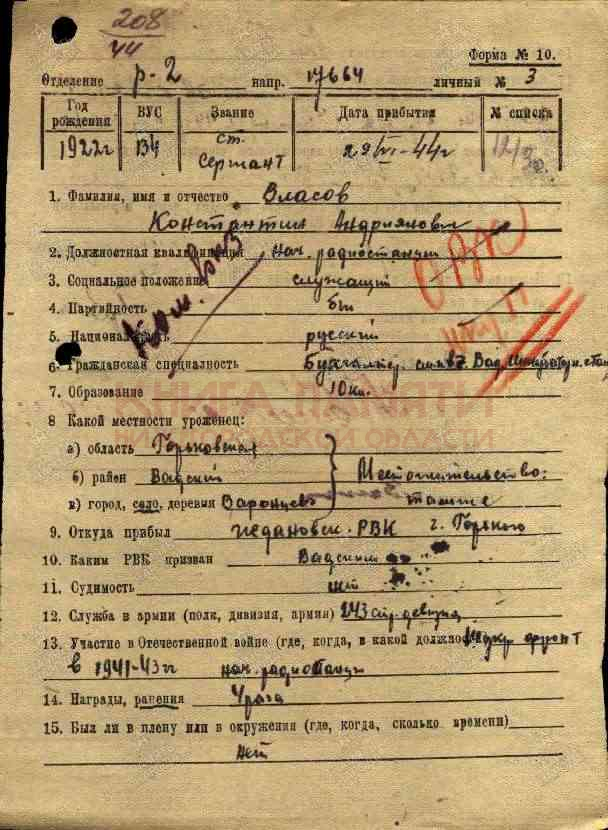 208
44
Форма № 10.
Отделение р-2 напр. 17664 личный № 3
Год рождения ВУС Звание Дата прибытия № списка
1922г 134 ст. сержант 29/VI-44г 12/
1. Фамилия, имя и отчество Власов
Константин Андриянович
2. Должностная квалификация нач. радиостанции
3. Социальное положение служащий
4. Партийность б/п
5. Национальность русский
6. Гражданская специальность Бухгалтер.
7. Образование 10 кл.
КНИГА ПАМЯТИ
НИЖЕГОРОДСКОЙ ОБЛАСТИ
8 Какой местности уроженец:
а) область Горьковская
б) район Вадский Местожительство:
в) город, село, деревня Воронцово
9. Откуда прибыл Ждановск. РВК г. Горького
10. Каким РВК призван Вадским
11. Судимость нет
12. Служба в армии (полк, дивизия, армия) 243 стр. дивизия
13. Участие в Отечественной войне (где, когда, в какой должно 4 укр фронт
в 1941-43гг нач. радиостанции
14. Награды, ранения 4 раза
15. Был ли в плену или в окружения (где, когда, сколько времени)
нет